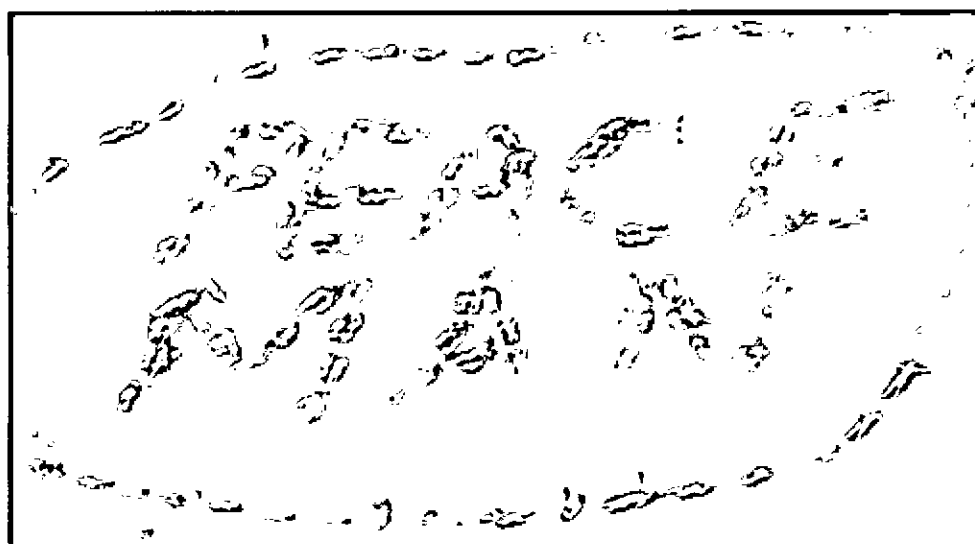 PEACE
MAN